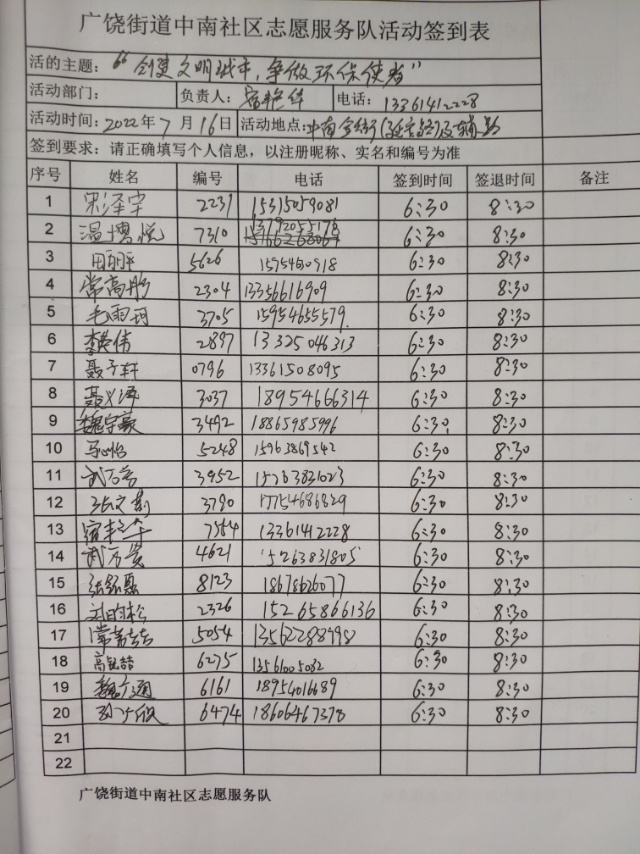 广饶街道中南社区志愿服务队活动签到表
活的主题：“创建文明城市，争做环保使者”
活动部门： 负责人： 电话：13361412228
活动时间：2022年7月16日 活动地点：中南
签到要求：请正确填写个人信息，以注册昵称、实名和编号为准
序号 姓名 编号 电话 签到时间 签退时间 备注
1 宋泽宇 2231 15315059081 6:30 8:30
2 温博悦 7310 6:30 8:30
3 田丽平 5626 6:30 8:30
4 常高彤 2304 13356616909 6:30 8:30
5 毛雨珂 3705 15954655579 6:30 8:30
6 李英伟 2897 13325046313 6:30 8:30
7 聂子轩 0796 13361508095 6:30 8:30
8 聂义泽 3037 18954666314 6:30 8:30
9 魏宇豪 3492 18865985996 6:30 8:30
10 马心怡 5248 15963869542 6:30 8:30
11 3952 15263831023 6:30 8:30
12 3790 17754686829 6:30 8:30
13 7564 13361412228 6:30 8:30
14 4621 15263831805 6:30 8:30
15 8123 18678626077 6:30 8:30
16 2326 15265866136 6:30 8:30
17 5054 13562288998 6:30 8:30
18 6275 13561005082 6:30 8:30
19 魏广通 6161 18954016689 6:30 8:30
20 6474 18606467378 6:30 8:30
21
22
广饶街道中南社区志愿服务队